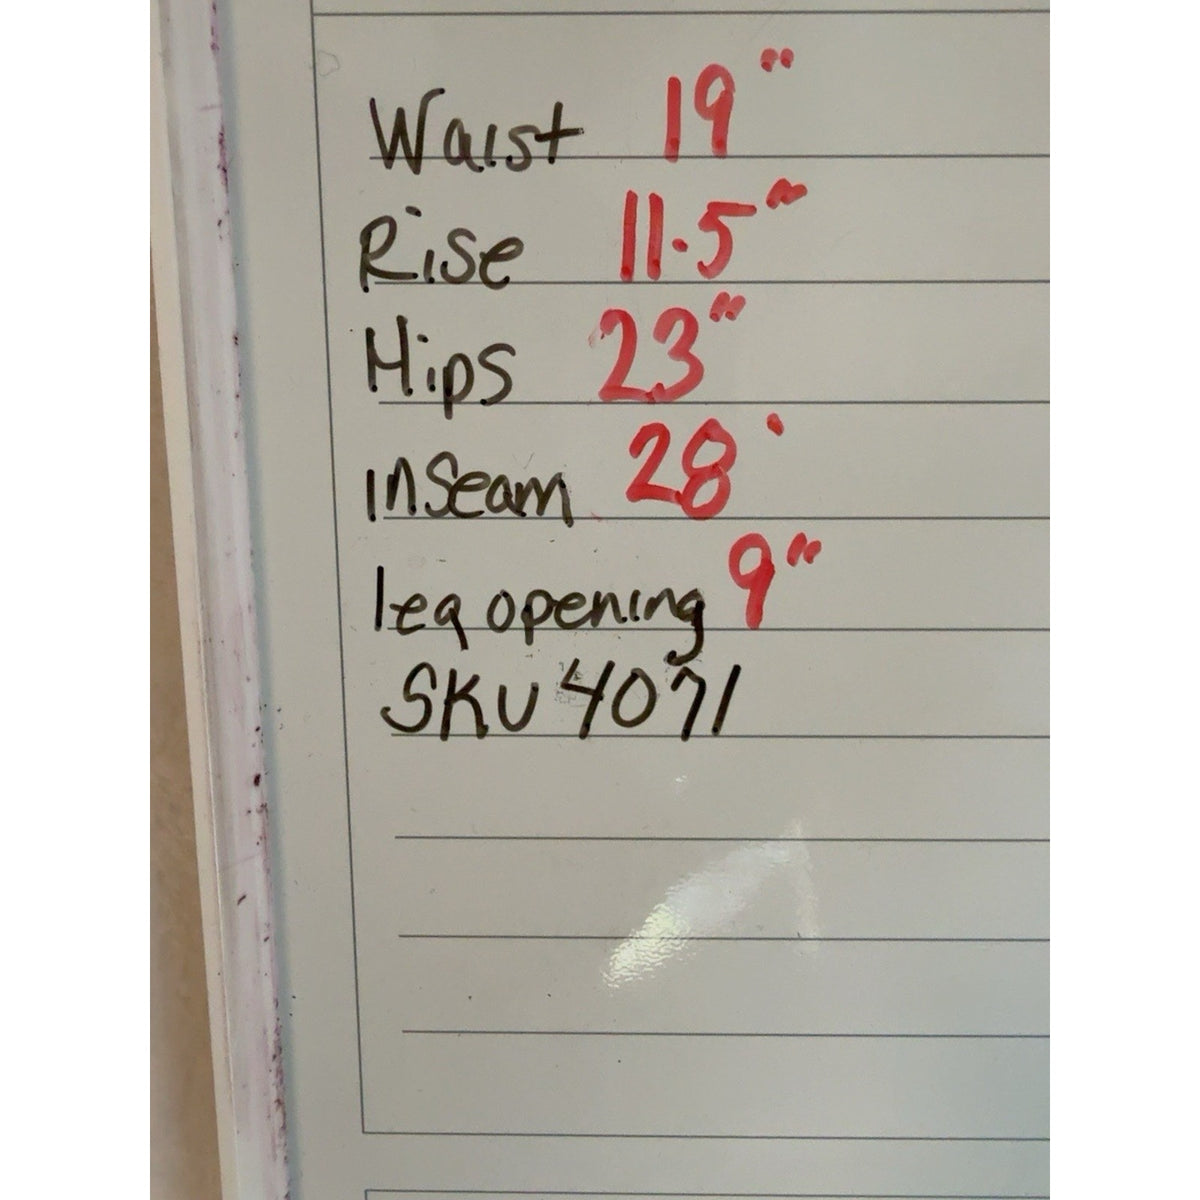 Waist 19"
Rise 11.5"
Hips 23"
inseam 28'
leg opening 9"
SKU 4071